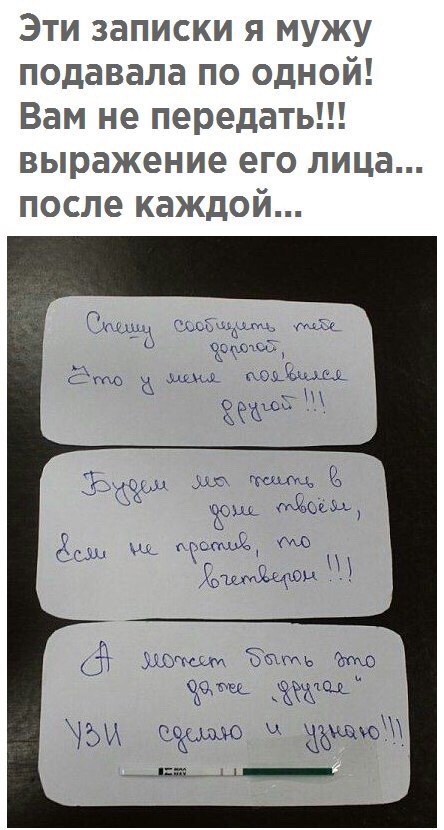 Эти записки я мужу
подавала по одной!
Вам не передать!!!
выражение его лица...
после каждой...
Спешу сообщить тебе
дорогой,
Что у меня появился
другой!!!
Будем мы жить в
доме твоём,
Если не против, то
вчетвером!!!
А может быть это
даже „другая"
УЗИ сделаю и узнаю!!!